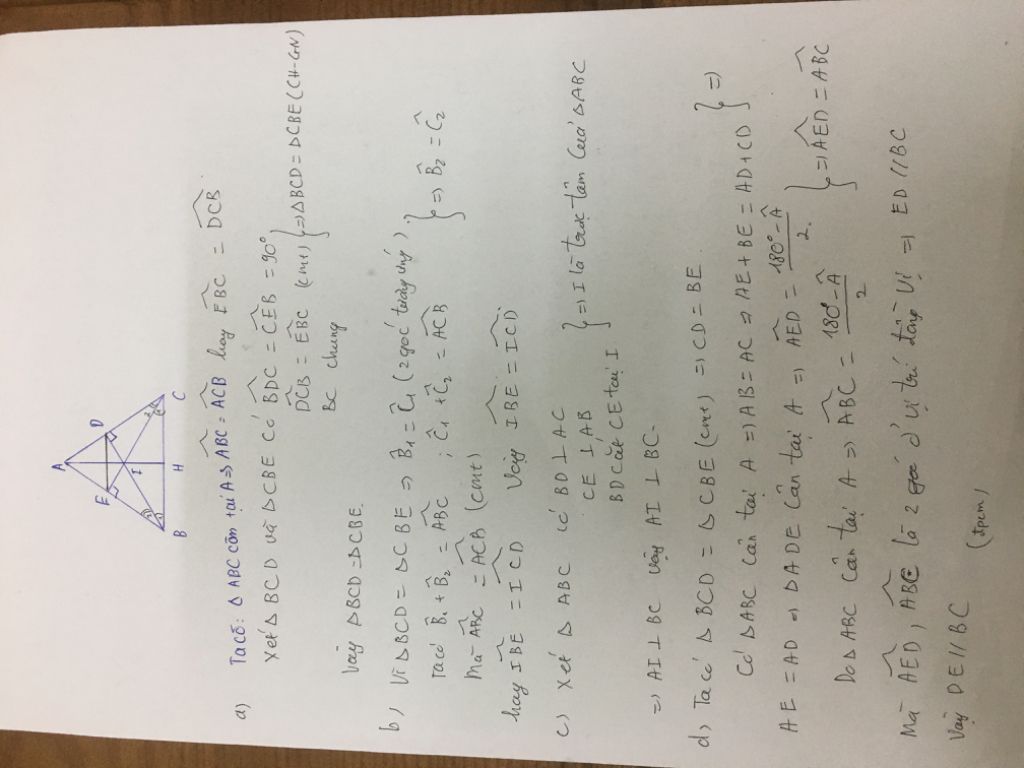 A
E
D
I
B
H
C
a) Ta có: Δ ABC cân tại A ⇒ ABC = ACB hay EBC = DCB
Xét Δ BCD và ΔCBE có BDC = CEB = 90°
DCB = EBC (cmt) } ⇒ ΔBCD = ΔCBE (CH-GN)
BC chung
Vậy ΔBCD = ΔCBE.
b) Vì ΔBCD = ΔCBE ⇒ B̂₁ = Ĉ₁ (2 góc tương ứng)
Ta có B̂₁ + B̂₂ = ABC ; Ĉ₁ + Ĉ₂ = ACB } ⇒ B̂₂ = Ĉ₂
Mà ABC = ACB (cmt)
hay IBE = ICD Vậy IBE = ICD.
c) Xét Δ ABC có BD ⊥ AC
CE ⊥ AB } ⇒ I là trực tâm của ΔABC
BD cắt CE tại I
⇒ AI ⊥ BC vậy AI ⊥ BC.
d) Ta có Δ BCD = Δ CBE (cmt) ⇒ CD = BE
Có ΔABC cân tại A ⇒ AB = AC ⇒ AE + BE = AD + CD } ⇒
AE = AD ⇒ ΔADE cân tại A ⇒ AED = (180° - Â)/2.
Do ΔABC cân tại A ⇒ ABC = (180° - Â)/2 } ⇒ AED = ABC
Mà AED, ABC là 2 góc ở vị trí đồng vị ⇒ ED // BC
Vậy DE // BC (đpcm)